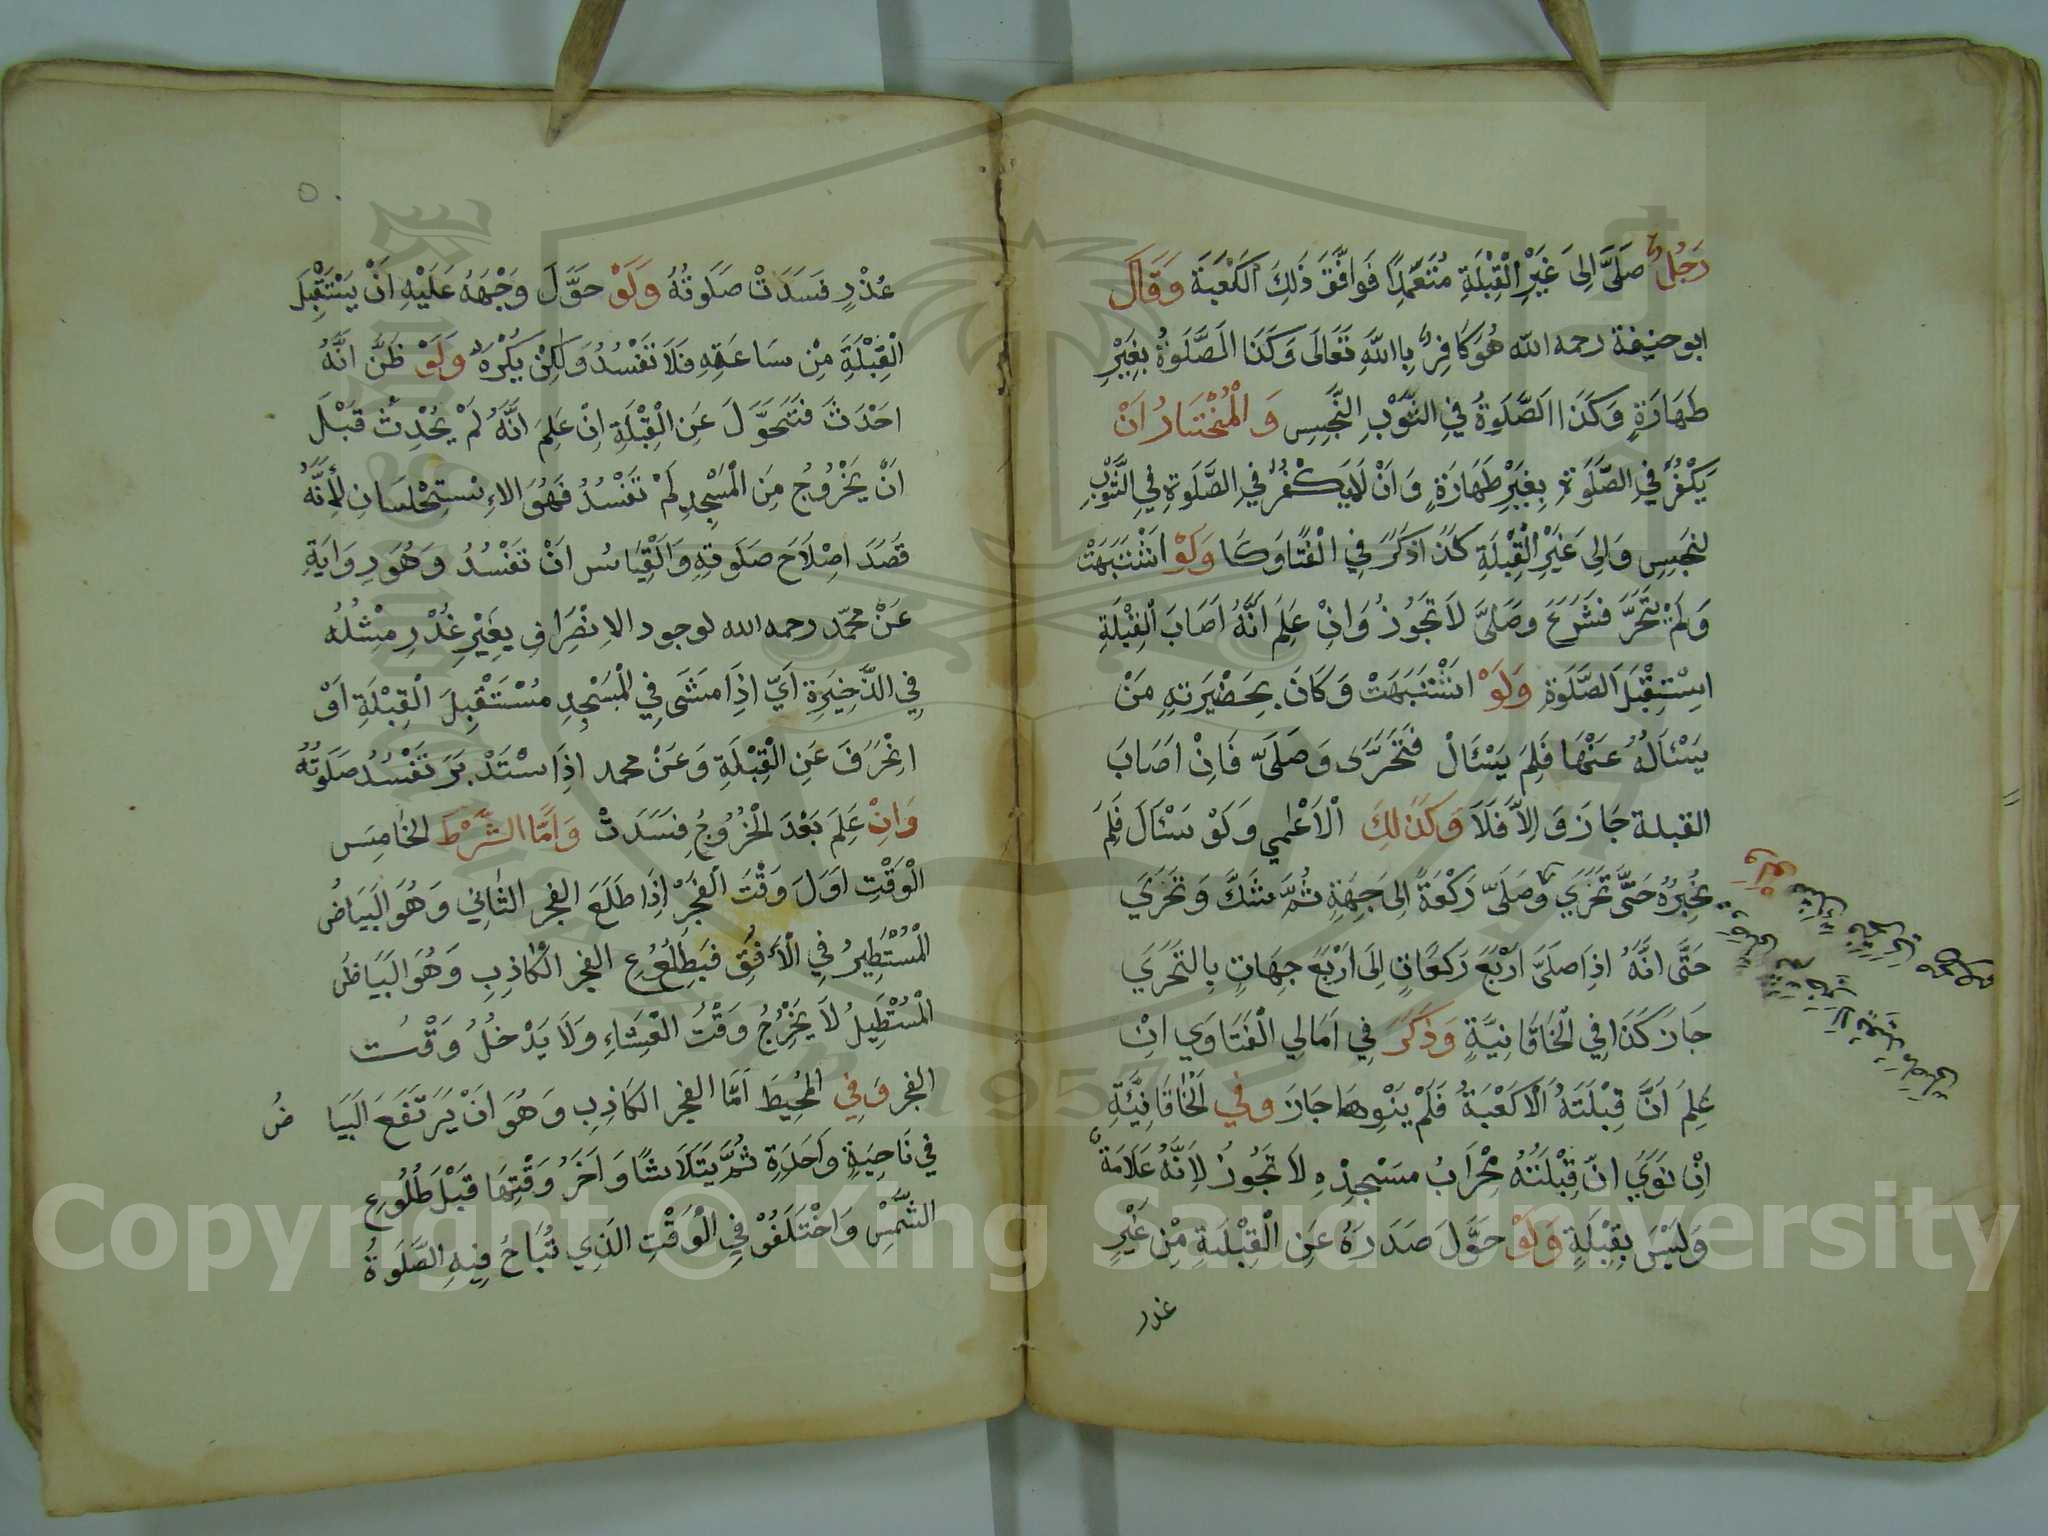 رَجُلٌ صَلَّى اِلَى غَيْرِ الْقِبْلَةِ مُتَعَمِّدًا فَوَافَقَ ذَلِكَ الْكَعْبَةَ وَقَالَ
ابو حنيفة رحمه الله هُوَ كَافِرٌ بِاللَّهِ تَعَالَى وَكَذَا الصَّلَوةُ بِغَيْرِ
طَهَارَةٍ وَكَذَا الصَّلَوةُ فِي الثَّوْبِ النَّجِسِ وَالْمُخْتَارُ اَنْ
يَكْفُرَ فِي الصَّلَوةِ بِغَيْرِ طَهَارَةٍ وَاَنْ لَا يَكْفُرُ فِي الصَّلَوةِ فِي الثَّوْبِ
لنجَسِ وَاِلى غَيْرِ الْقِبْلَةِ كَذَا ذَكَرَ فِي الْفَتَاوَى وَلَوْ اشْتَبَهَتْ
وَلَمْ يَتَحَرَّ فَشَرَعَ وَصَلَّى لَا تَجُوزُ وَاِنْ عَلِمَ اَنَّهُ اَصَابَ الْقِبْلَةِ
اِسْتَقْبَلَ الصَّلَوةِ وَلَوْ اشْتَبَهَتْ وَكَانَ بِحَضْرَتِهِ مَنْ
يَسْئَالُهُ عَنْهَا فَلَمْ يَسْئَالْ فَتَحَرَّى وَصَلَّى فَاِنْ اَصَابَ
القبلة جَازَ وَاِلَّا فَلَا وَكَذَلِكَ الْاَعْمِي وَلَوْ سَئَالَ فَلَمْ
يُخْبِرهُ حَتَّى تَحَرَّي وَصَلَّى رَكْعَةً اِلَى جِهَةٍ ثُمَّ شَكَّ وَتَحَرَّي
حَتَّى اَنَّهُ اِذَا صَلَّى اَرْبَعَ رَكَعَاتٍ اِلَى اَرْبَعِ جِهَاتٍ بِالتَّحَرِّي
جَازَ كَذَا فِي الْخَاقَانِيَّةِ وَذَكَرَ فِي اَمَالِي الْفَتَاوِي اِنْ
عَلِمَ اَنَّ قِبْلَتَهُ الْكَعْبَةُ فَلَمْ يَنْوِهَا جَازَ وَفِي الْخَاقَانِيَّةِ
اِنْ نَوَيَ اَنَّ قِبْلَتَهُ مِحْرَابُ مَسْجِدِهِ لَا تَجُوزُ لِاَنَّهُ عَلَامَةٌ
وَلَيْسَ بِقِبْلَةٍ وَلَوْ حَوَّلَ صَدْرَهُ عَنِ الْقِبْلَةِ مِنْ غَيْرِ
عذر
عُذْرٍ فَسَدَتْ صَلَوتُهُ وَلَوْ حَوَّلَ وَجْهَهُ عَلَيْهِ اَنْ يَسْتَقْبِلَ
الْقِبْلَةَ مِنْ سَاعَتِهِ فَلَا تَفْسُدُ وَلَكِنْ يُكْرَهُ وَلَوْ ظَنَّ اَنَّهُ
احْدَثَ فَتَحَوَّلَ عَنِ الْقِبْلَةِ اِنْ عَلِمَ اَنَّهُ لَمْ يُحْدِثْ قَبْلَ
اَنْ يَخْرُوجُ مِنَ الْمَسْجِدِ لَمْ تَفْسُدُ فَهُوَ الاِسْتِحْسَانِ لِأَنَّهُ
قَصَدَ اِصْلَاحَ صَلَوتِهِ وَالْقِيَاسُ اَنْ تَفْسُدُ وَهُوَ رِوَايَةِ
عَنْ مُحَمّد رحمه الله لوجود الاِنْصِرَافِ بِغَيْرِ عُذْرِ مِثْلُهُ
فِي الذَّخِيَرةِ اَيّ اِذَا مَشَى فِي الْمَسْجِدِ مُسْتَقْبِلَ الْقِبْلَةِ اَوْ
انْحَرَفَ عَنِ الْقِبْلَةِ وَعَنْ محمد اِذَا سْتَدْبَرَ تَفْسُدُ صَلَوتُهُ
وَاِنْ عَلِمَ بَعْدَ الْخُرُوجِ فسَدَتْ وَاَمَّا الشَّرْطَ الخَامِسَ
الْوَقْتِ اَوَلَ وَقْتَ الْفَجْرِ اِذَا طَلَعَ الفجر الثَّانِي وَهُوَ الْبَيَاضُ
الْمُسْتَطِيرُ فِي الْأَفُقِ فَبِطُلُوعِ الفجر الْكَاذِبِ وَهُوَ الْبَيَاضُ
الْمُسْتَطِيلُ لَا يَخْرُجُ وَقْتُ الْعِشَاءِ وَلَا يَدْخُلُ وَقْتُ
الفجر وَفِي الْمُحِيطَ اَمَّا الفجر الكَاذِبِ وَهُوَ اَنْ يَرْتَفِعَ الْبَيَا ضُ
فِي نَاحِيَةٍ وَاحِدَةٍ ثُمَّ يَتَلَاشَا وَاَخَرُ وَقْتِهَا قَبْلَ طُلُوعِ
الشَّمْسِ وَاخْتَلَفُوْ فِي الْوَقْتِ الَّذِي تُبَاحُ فِيهِ الصَّلَوةُ
Copyright © King Saud University
1957